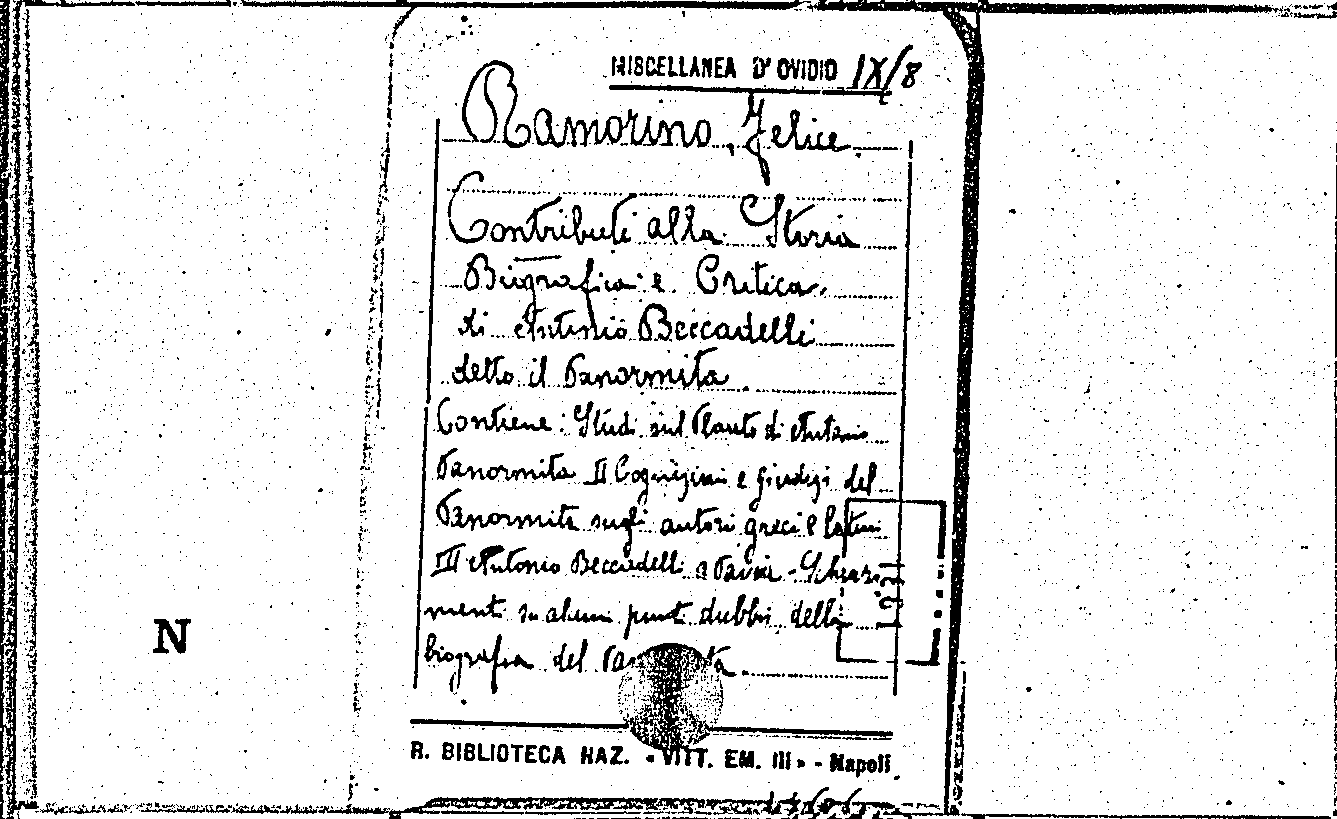 MISCELLANEA D'OVIDIO IX/8
Ramorino, Felice.
Contributi alla Storia
Biografica e Critica
di Antonio Beccadelli
detto il Panormita.
Contiene: Studi sul Plauto di Antonio
Panormita II Cognizioni e giudizi del
Panormita sugli autori greci e latini
III Antonio Beccadelli a Pavia - Schiari
menti su alcuni punti dubbi della
biografia del
N
R. BIBLIOTECA NAZ. « VITT. EM. III » - Napoli